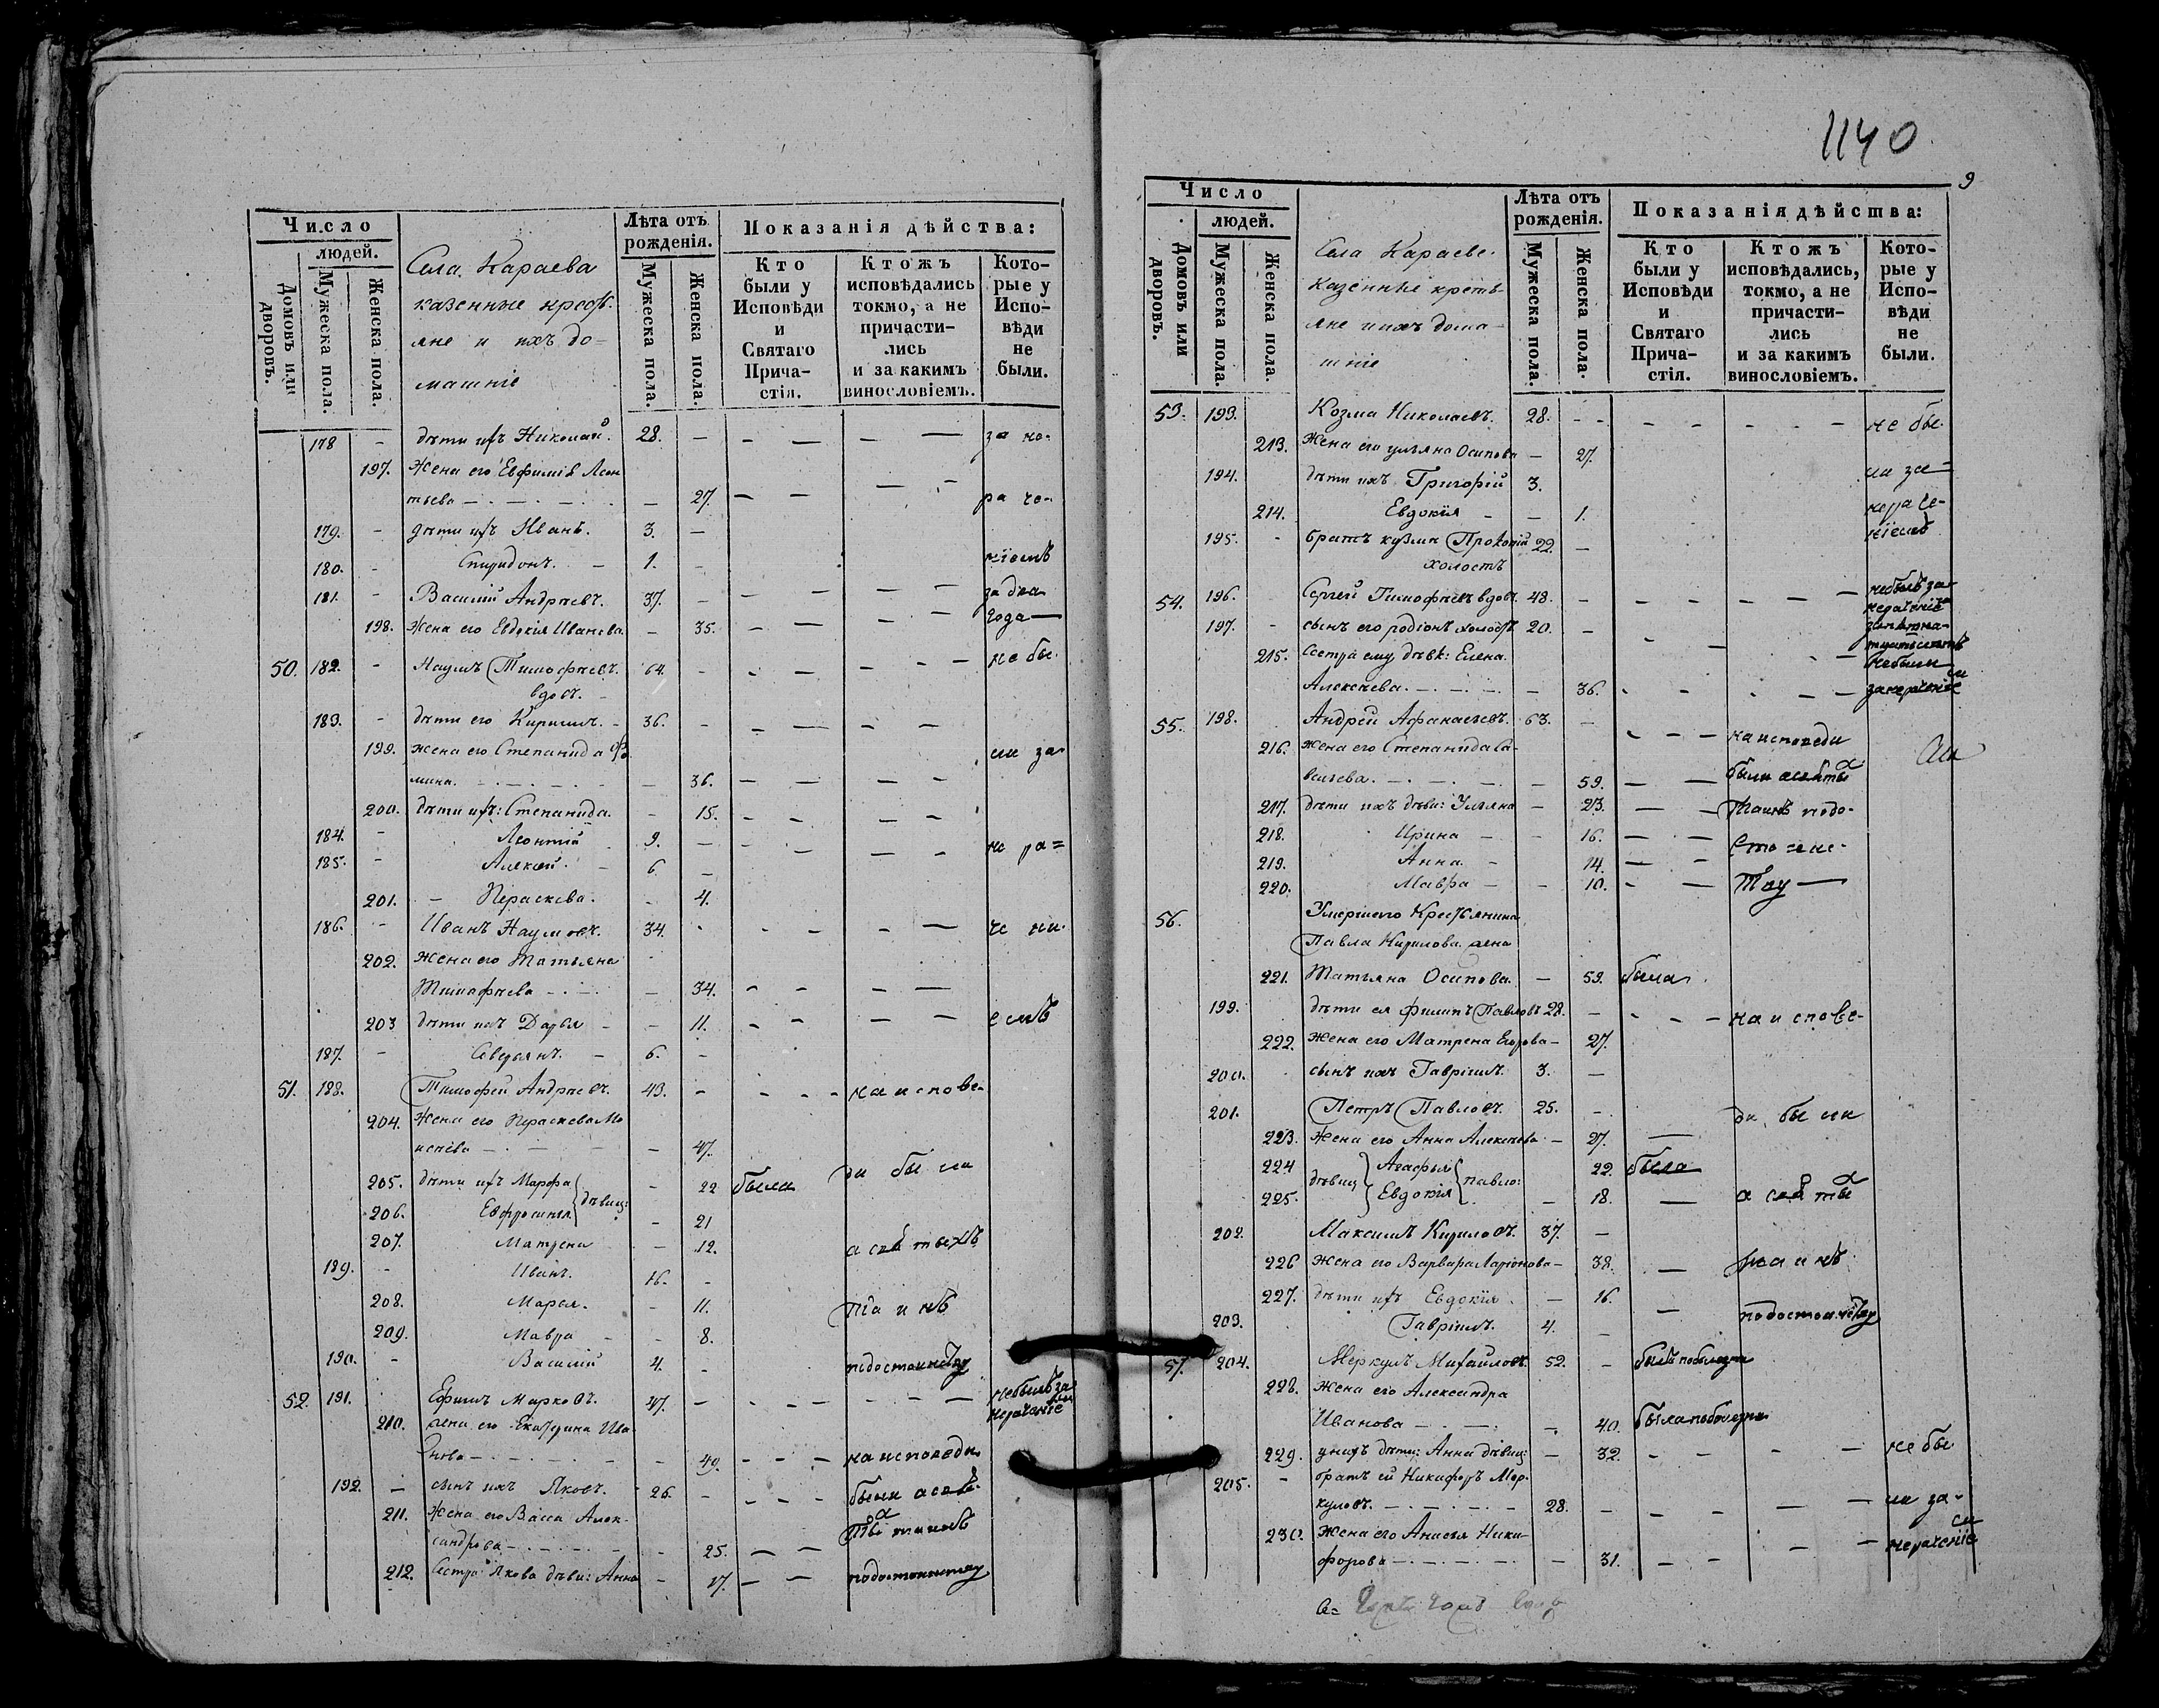 Число
людей.
Домовъ или дворовъ.
Мужеска пола.
Женска пола.
Села Караева
казенные крестъ
яне и ихъ до=
машніе
Лѣта отъ рожденія.
Мужеска пола.
Женска пола.
Показанія дѣйства:
Кто были у Исповѣди и Святаго Прича- стія.
Ктожъ исповѣдались токмо, а не причасти- лись и за какимъ винословіемъ.
Кото- рые у Испо- вѣди не были.
178 - дѣти ихъ Николай. 28. - за не-
197. Жена его Евфимія Леон
тьева - 27. ра че-
179. - дѣти ихъ Иванъ. 3. -
180. - Спиридонъ. - 1. - ніемъ
181. - Василій Андреевъ. 37. - за два
198. Жена его Евдокія Иванова. - 35. года
50. 182. - Наумъ Тимофѣевъ. 64. - не бы-
вдовъ.
183. - дѣти его Кирилъ. - 36. -
199. жена его Степанида Фо ли за
мина. - 36.
200. дѣти ихъ: Степанида. - 15.
184. - Леонтій 9. - не ра=
185. - Алексей. - 6 -
201. - Параскева. - 4.
186. - Иванъ Наумовъ. 34. - че ні-
202. Жена его Татьяна
Тимофѣева - 34.
203 дѣти ихъ Дарья - - 11. емъ
187. - Северьянъ. - 6. -
51. 188. Тимофей Андреевъ. 43. - на испове-
204. Жена его Параскева Мо
исеева - 47.
205. дѣти ихъ Марфа - 22 была ди бы ли
206. Евфросинья дѣвиц: - 21
207. Матрена - 12. а святыхъ
189. - Иванъ. 16. -
208. Марья. - 11. Таинъ
209. Мавра - - 8.
190. - Василій 4. - недостоинству
52. 191. Ефимъ Марковъ. 47. - небылъ за
нераченіемъ
210. жена его Екатерина Ива
нова - 49. на исповеди
192. - сынъ ихъ Яковъ. 26. - были а свя-
211. Жена его Васса Алек-
сандрова - 25. тыхъ таинъ
212. Сестра Якова дѣви: Анна - 17. недостоинству
1140
9
Число
людей.
Домовъ или дворовъ.
Мужеска пола.
Женска пола.
Села Караева
казенные крестъ-
яне и ихъ дома-
шніе
Лѣта отъ рожденія.
Мужеска пола.
Женска пола.
Показанія дѣйства:
Кто были у Исповѣди и Святаго Прича- стія.
Ктожъ исповѣдались, токмо, а не причасти- лись и за какимъ винословіемъ.
Кото- рые у Испо- вѣди не были.
53. 193. Козма Николаевъ. 28. - - не бы-
213. Жена его Ульяна Осипова - 27.
194. дѣти ихъ Григорій 3. ли за-
214. Евдокія - - 1. нераче-
195. - братъ кузмы Прокопій 22. - ніемъ
холостъ
54. 196. - Сергей Тимофѣевъ вдовъ. 48. - небылъ за
нераченіе
197. - сынъ его родіонъ холостъ 20. -
215. Сестра ему дѣвк: Елена. небыли
Алексеева. - 36. занераченіе
55. 198. Андрей Афанасьевъ. 63. - на исповеди
216. жена его Степанида Са-
вельева. - 59. были а святы
217. дѣти ихъ дѣви: Ульяна - 23. Таинъ недо-
218. Ирина - - 16. стоине-
219. Анна. - 14.
220. Мавра - - 10. Тву
56. Умершего Крестьянина
Павла Кирилова жена
221. Татьяна Осипова. - 53. была
199. дѣти ея Филипъ Павловъ 28. - на испове-
222. Жена его Матрена Егорова - 27.
200. сынъ ихъ Гавріилъ 3. -
201. Петръ Павловъ. 25. - ди, бы ли
223. Жена его Анна Алексеева - 27.
224 дѣвиц Агафья павло: 22. была
225. Евдокія - 18. а святы
202. Максимъ Кириловъ. 37. -
226 Жена его Варвара Ларіонова - 38. Таинъ
227. дѣти ихъ Евдокія - 16.
203. Гавріилъ. 4. - недостоинству
57. 204. Меркулъ Михайловъ. 52. -
228. Жена его Александра
Иванова - 40.
229. у нихъ дѣти: Анна дѣвиц: - 32. не бы
205. - братъ ей Никифоръ Мер-
куловъ. - 28. - ли за-
230. Жена его Анисья Ники-
форова - 31. нераченіе